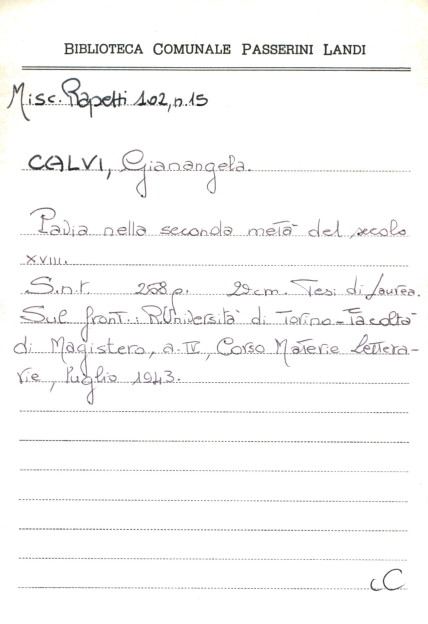 BIBLIOTECA COMUNALE PASSERINI LANDI
Misc. Rapetti 102, n. 15
CALVI, Gianangela.
Pavia nella seconda metà del secolo
XVIII.
S.n.t. 258 p. 29 cm. Tesi di Laurea.
Sul front.: R. Università di Torino - Facoltà
di Magistero, a. IV, Corso Materie Lettera-
rie, luglio 1943.
cC